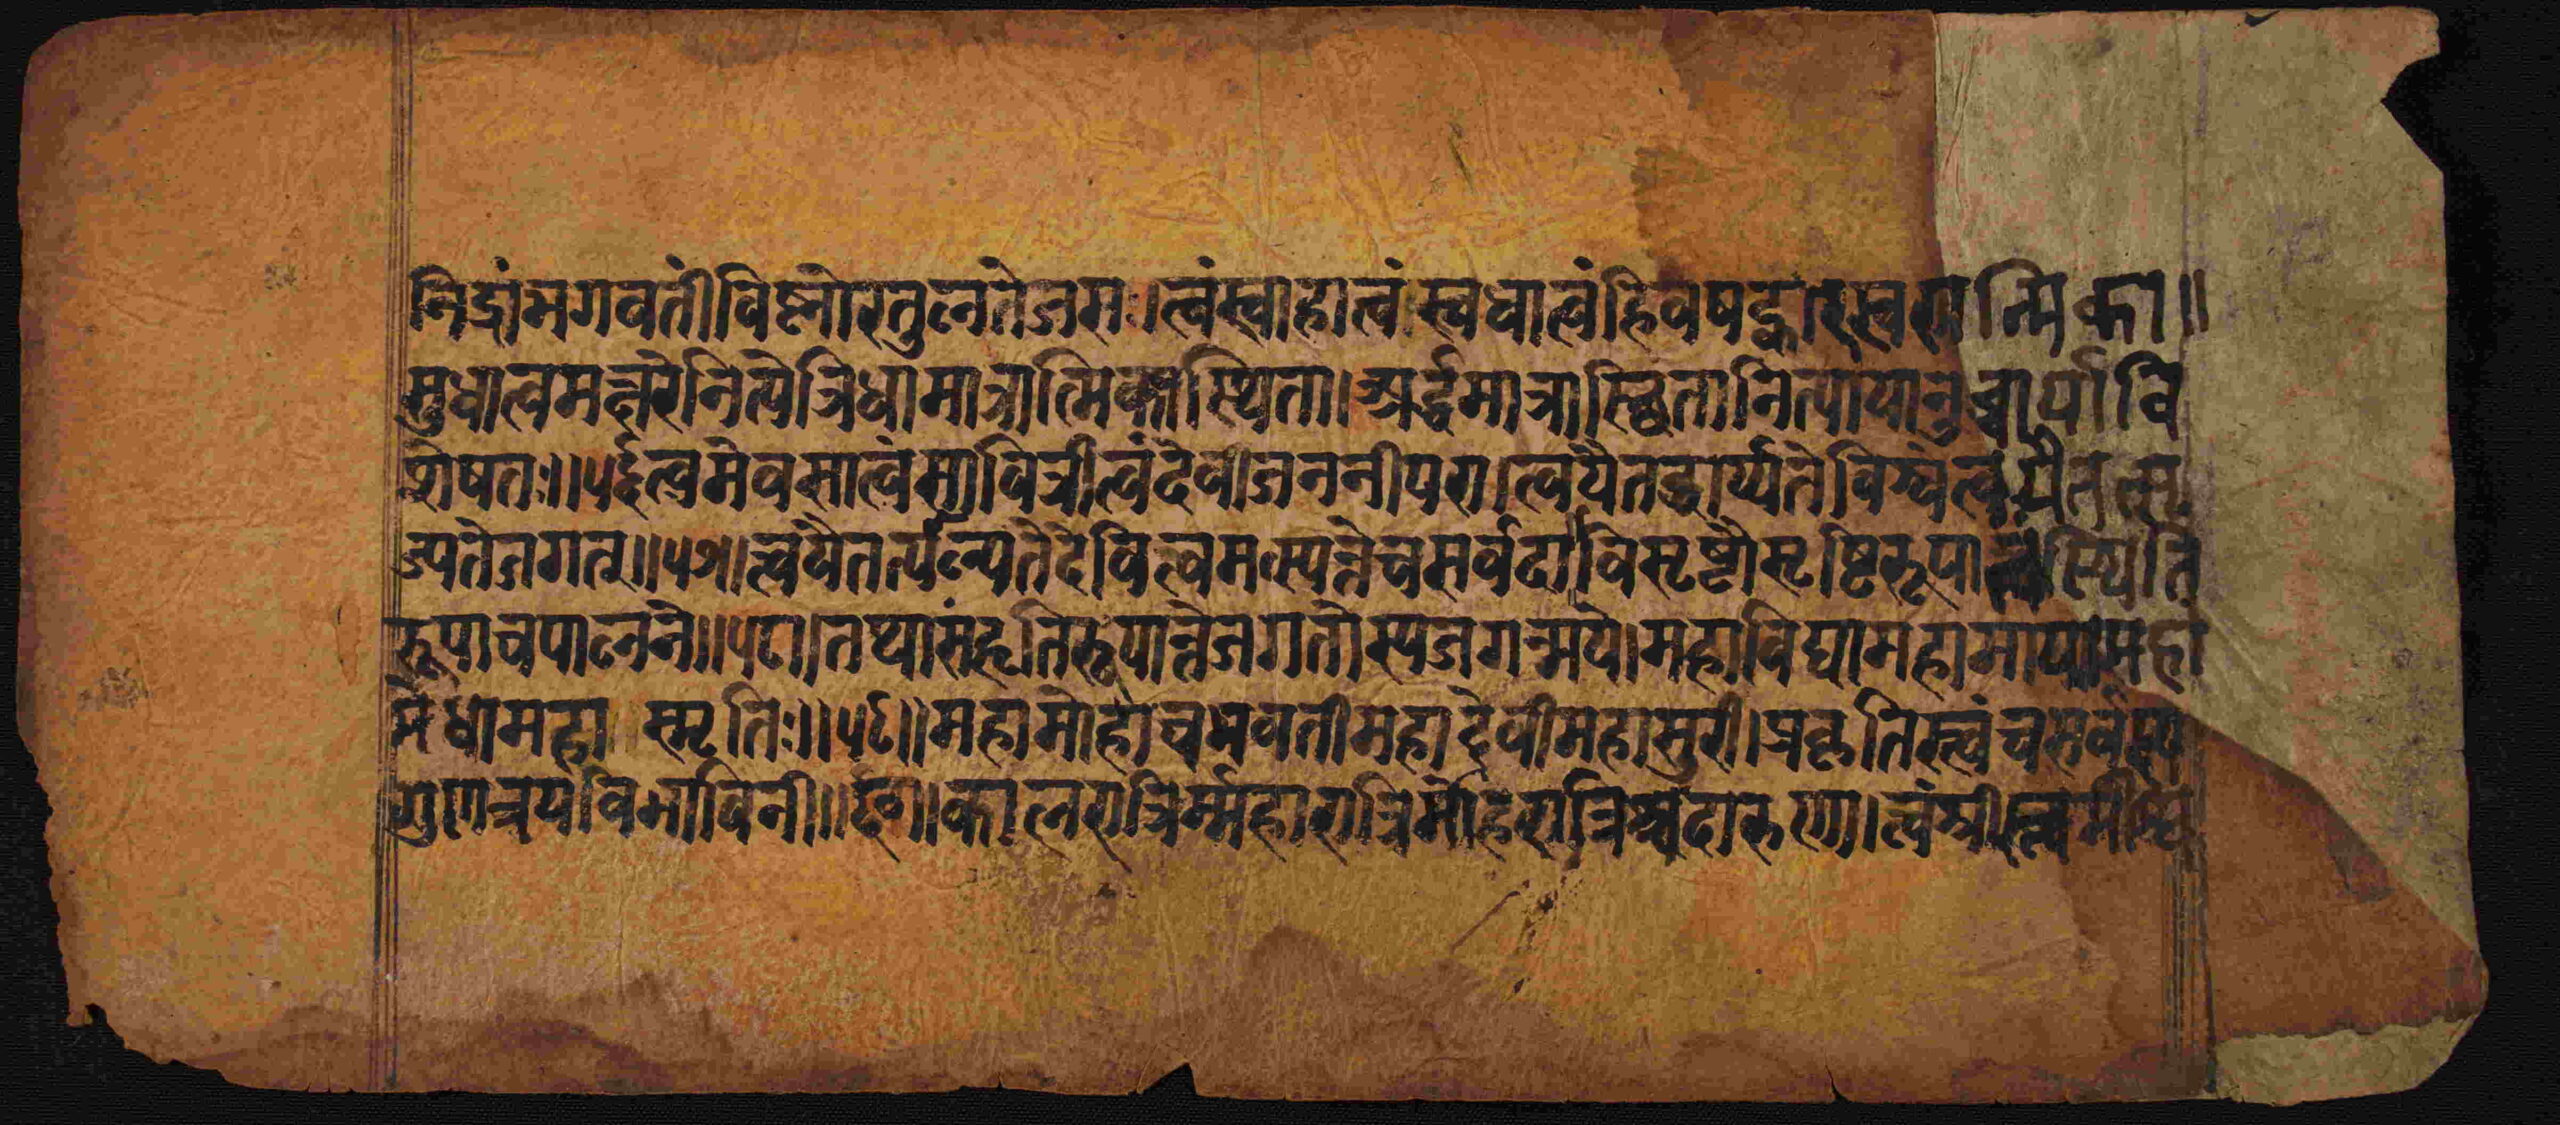 निद्रांभगवतींविष्णोरतुलतेजसः।त्वंस्वाहात्वंस्वधात्वंहिवषट्कारस्वरात्मिका॥
सुधात्वमक्षरेनित्येत्रिधामात्रात्मिकास्थिता।अर्द्धमात्रास्थितानित्यायानुच्चार्यावि
शेषतः॥५६त्वमेवसात्वंसावित्रीत्वंदेवीजननीपरा।त्वयैतद्धार्य्यतेविश्वंत्वयैतत्सृ
ज्यतेजगत्॥५७।त्वयैतत्पाल्यतेदेवित्वमत्स्यन्तेचसर्वदा।विसृष्टौसृष्टिरूपात्वंस्थिति
रूपाचपालने॥५८॥तथासंहृतिरूपान्तेजगतोस्यजगन्मये।महाविद्यामहामायामहा
मेधामहास्मृतिः॥५९॥महामोहाचभवतीमहादेवीमहासुरी।प्रकृतिस्त्वंचसर्वस्य
गुणत्रयविभाविनी॥६०॥कालरात्रिर्म्महारात्रिर्मोहरात्रिश्चदारुणा।त्वंश्रीस्त्वमी